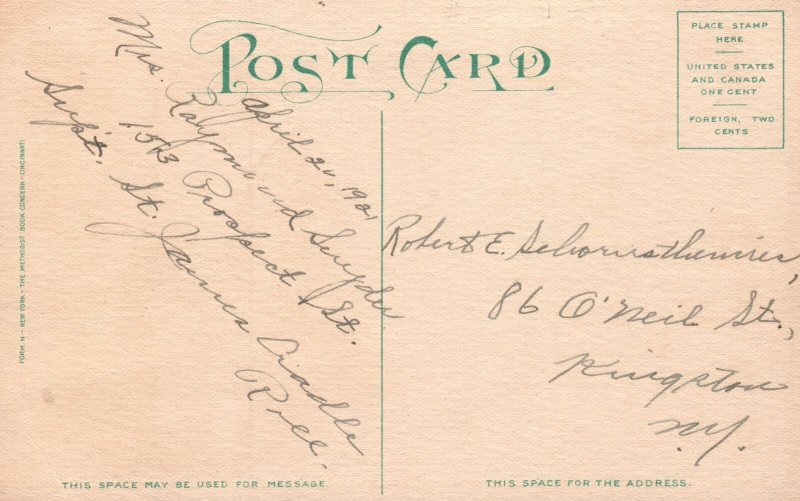 POST CARD
PLACE STAMP
HERE
UNITED STATES
AND CANADA
ONE CENT
FOREIGN, TWO
CENTS
April 2, 1921
Mrs. Raymond Snyder
153 Prospect St.
Supt. St. James Cradle
Roll.
Robert E.
86 O'Neil St.,
Kingston
N.Y.
FORM H - NEW YORK - THE METHODIST BOOK CONCERN - CINCINNATI
THIS SPACE MAY BE USED FOR MESSAGE
THIS SPACE FOR THE ADDRESS.